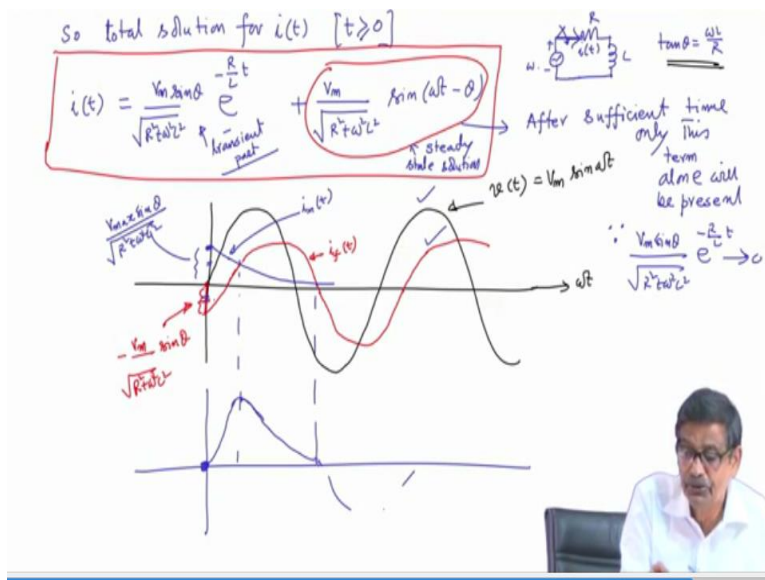 So total solution for i(t) [t ≥ 0]
i(t) = Vm sinθ / √(R²+ω²L²) e^(-R/L t) + Vm / √(R²+ω²L²) sin(ωt - θ)
transient part
steady state solution
R
i(t)
L
tanθ = ωL/R
After sufficient time
only this
term
alone will
be present
∵ Vm sinθ / √(R²+ω²L²) e^(-R/L t) → 0
v(t) = Vm sin ωt
Vmax sinθ / √(R²+ω²L²)
in(t)
if(t)
ωt
- Vm / √(R²+ω²L²) sinθ